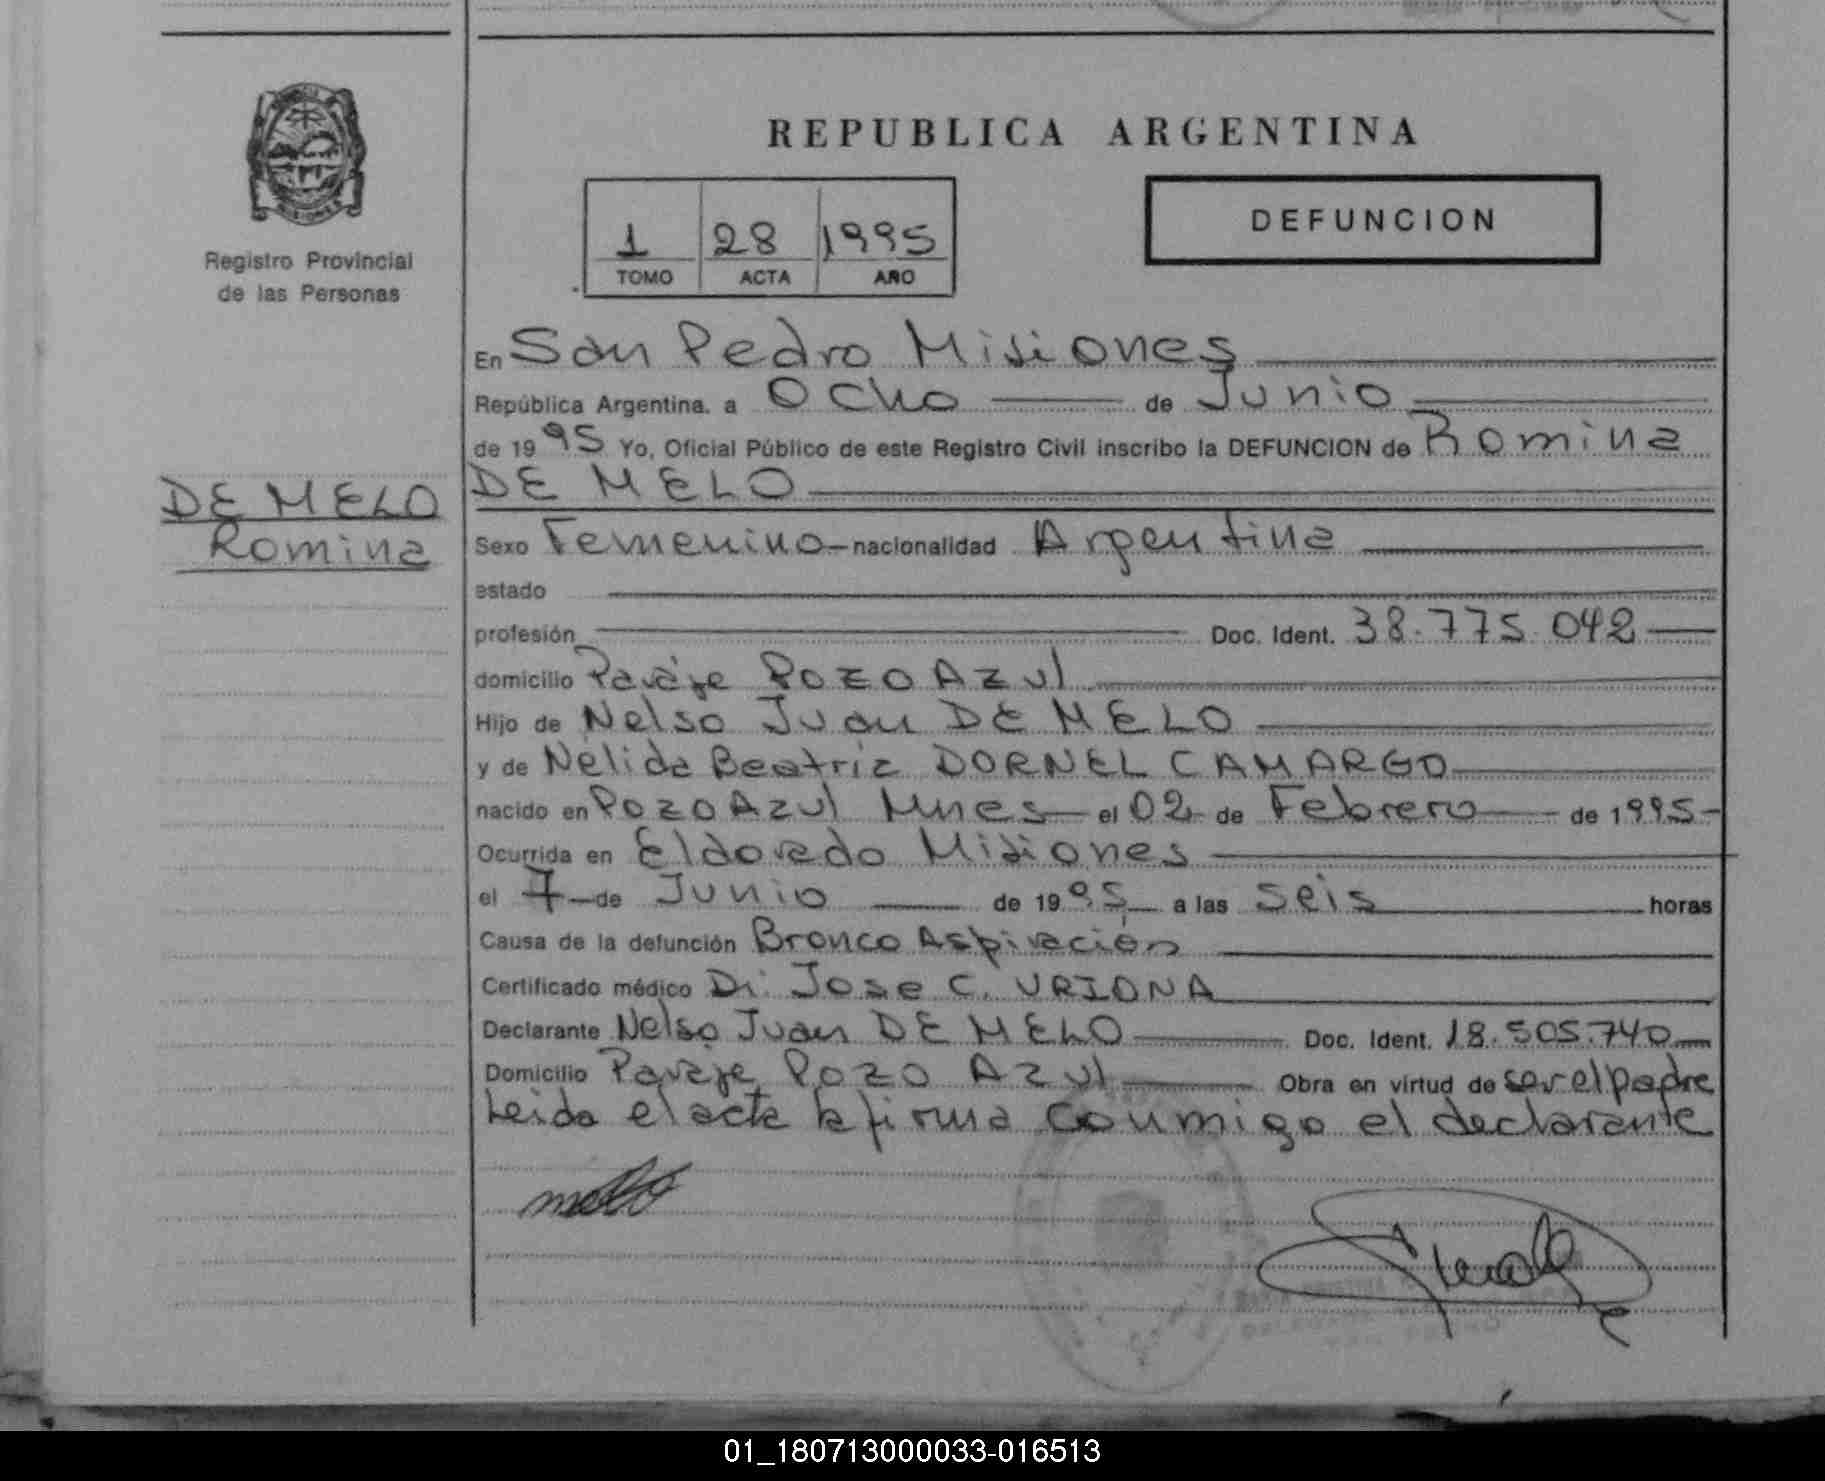 MISIONES
Registro Provincial
de las Personas
REPUBLICA ARGENTINA
1 28 1995
TOMO ACTA AÑO
DEFUNCION
En San Pedro Misiones
República Argentina. a Ocho de Junio
de 1995 Yo, Oficial Público de este Registro Civil inscribo la DEFUNCION de Romina
DE MELO
DE MELO
Romina
Sexo Femenino nacionalidad Argentina
estado
profesión Doc. Ident. 38.775.042
domicilio Paraje POZO AZUL
Hijo de Nelso Juan DE MELO
y de Nélida Beatriz DORNEL CAMARGO
nacido en POZO AZUL Mnes el 02 de Febrero de 1995
Ocurrida en Eldorado Misiones
el 7 de Junio de 1995 a las seis horas
Causa de la defunción Bronco Aspiración
Certificado médico Dr. Jose C. URIONA
Declarante Nelso Juan DE MELO Doc. Ident. 18.505.740
Domicilio Paraje Pozo Azul Obra en virtud de ser el padre
Leida el acta la firma conmigo el declarante
melo
01_180713000033-016513